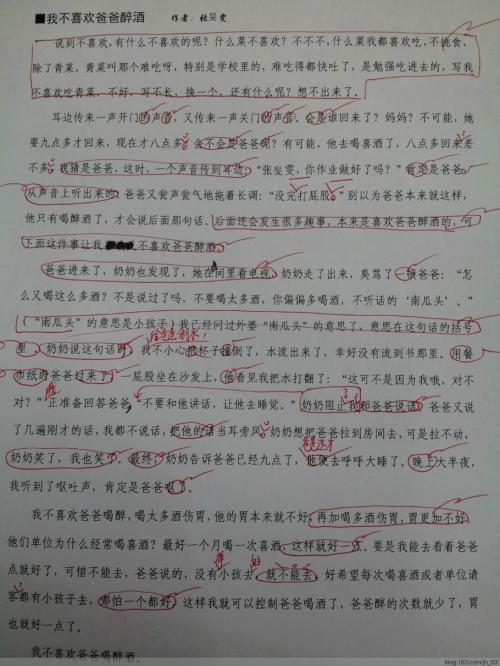 ■我不喜欢爸爸醉酒 作者：张昊雯
说到不喜欢,有什么不喜欢的呢？什么菜不喜欢？不不不,什么菜我都喜欢吃,不挑食,
除了青菜，青菜叫那个难吃呀，特别是学校里的，难吃得都快吐了，是勉强吃进去的，写我
不喜欢吃青菜，不好，写不长，换一个，还有什么呢？想不出来了。
耳边传来一声开门的声音，又传来一声关门的声音。会是谁回来了？妈妈？不可能，她
要九点多才回来，现在才八点多。会不会是爸爸呢？有可能，他去喝喜酒了，八点多回来差
不多。我猜是爸爸，这时，一个声音传到耳边：“张昊雯，你作业做好了吗？”肯定是爸爸，
从声音上听出来的。爸爸又瓮声瓮气地拖着长调：“没完打屁股。”别以为爸爸本来就这样，
他只有喝醉酒了，才会说后面那句话。后面还会发生很多趣事，本来是喜欢爸爸醉酒的，可
下面这件事让我 不喜欢爸爸醉酒。
爸爸进来了，奶奶也发现了，她在间里看电视，奶奶走了出来，臭骂了一顿爸爸：“怎
么又喝这么多酒？不是说过了吗，不要喝太多酒，你偏偏多喝酒，不听话的‘南瓜头’。”
（“南瓜头”的意思是小孩子）我已经问过外婆“南瓜头”的意思了，意思在这句话的括号
给爸爸倒水，
里。奶奶说这句话时，我不小心把杯子撞倒了，水流出来了，幸好没有流到书那里。用餐
巾纸时爸爸过来了，一屁股坐在沙发上，他看见我把水打翻了：“这可不是因为我哦，对不
对？”正准备回答爸爸，“不要和他讲话，让他去睡觉。”奶奶阻止我和爸爸说话。爸爸又说
了几遍刚才的话，我都不说话，把他的话当耳旁风。奶奶想把爸爸拉到房间去，可是拉不动，
奶奶笑了，我也笑了。最终，奶奶告诉爸爸已经九点了，他便去呼呼大睡了。晚上大半夜，
我听到了呕吐声，肯定是爸爸呕了。
我不喜欢爸爸喝醉，喝太多酒伤胃，他的胃本来就不好，再加喝多酒伤胃，胃更加不好。
他们单位为什么经常喝喜酒？最好一个月喝一次喜酒，这样就好一点。要是我能去看着爸爸
点就好了，可惜不能去，爸爸说的，没有小孩去，就不能去。好希望每次喝喜酒或者单位请
客都有小孩子去，哪怕一个都好。这样我就可以控制爸爸喝酒了，爸爸醉的次数就少了，胃
也就好一点了。
我不喜欢爸爸喝醉。